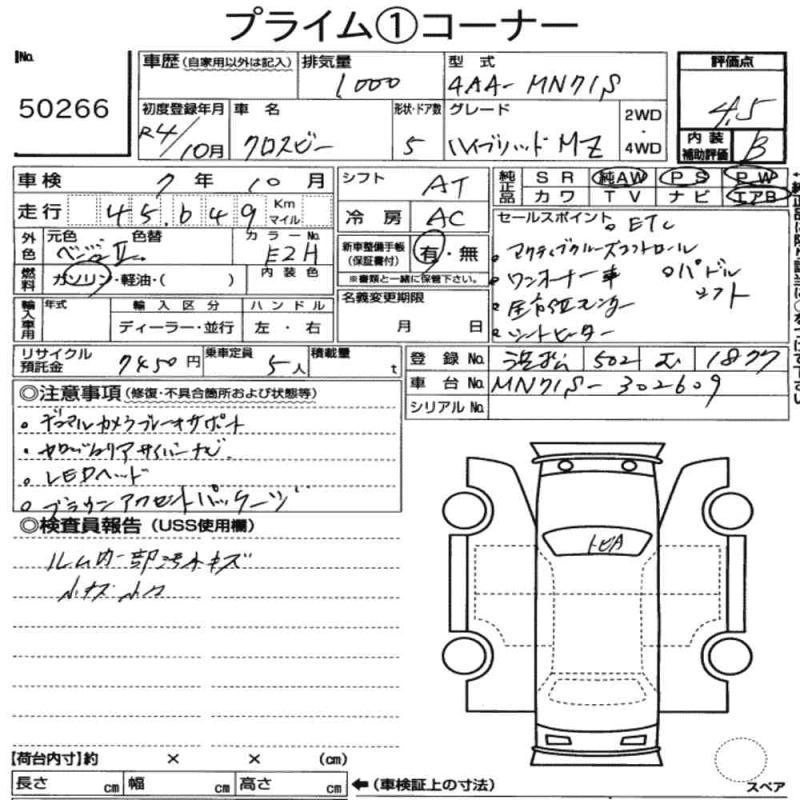 プライム①コーナー
No.
50266
車歴 (自家用以外は記入) 排気量 型式 評価点
1000 4AA-MN71S 4.5
初度登録年月 車名 形状・ドア数 グレード 2WD・4WD 内装補助評価
R4/10月 クロスビー 5 ハイブリッドMZ B
車検 7年10月 シフト AT 純正品 SR 純AW PS PW
カワ TV ナビ エアB
走行 45,649 Km マイル 冷房 AC セールスポイント
外色 元色 色替 カラーNo.
ベージュII E2H 新車整備手帳(保証書付) 有・無
※書類と一緒に保管下さい。
燃料 ガソリン・軽油・( ) 内装色
。ETC
。アクティブクルーズコントロール
。ワンオーナー車 。パドルシフト
。全方位モニター
。シートヒーター
輸入車用 年式 輸入区分 ハンドル 名義変更期限
ディーラー・並行 左・右 月 日
リサイクル預託金 7450円 乗車定員 5人 積載量 t
登録No. 浜松 502 む 1877
車台No. MN71S-302609
シリアルNo.
◎注意事項 (修復・不具合箇所および状態等)
。デュアルカメラブレーキサポート
。LEDヘッド
。ブラウンアクセントパッケージ
◎検査員報告 (USS使用欄)
ルーム内一部汚れキズ
小キズ 小凹
トビA
【荷台内寸】約 × × (cm)
長さ cm 幅 cm 高さ cm ←(車検証上の寸法)
スペア